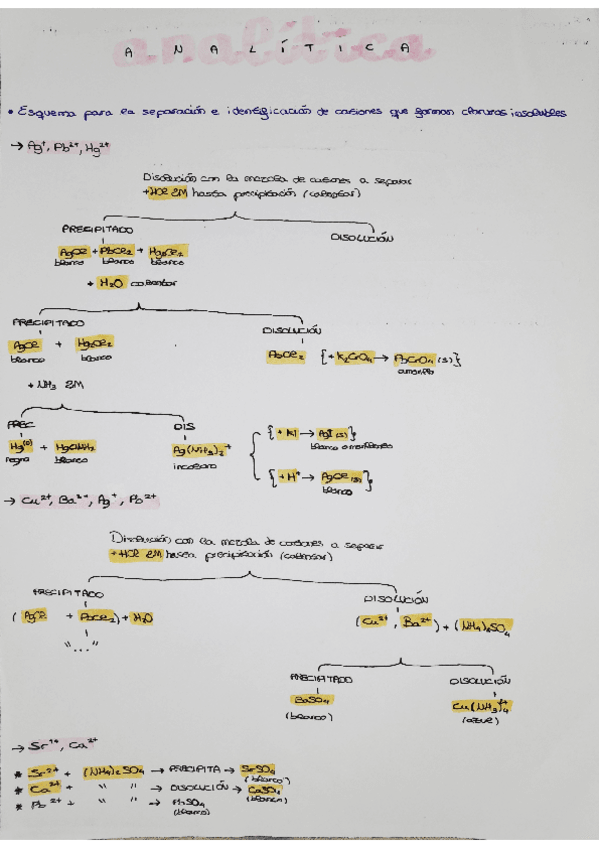 ANALÍTICA
• Esquema para la separación e identificación de cationes que forman cloruros insolubles
→ Ag⁺, Pb²⁺, Hg²⁺
Disolución con la mezcla de cationes a separar
+HCl 2M hasta precipitación (calentar)
PRECIPITADO
DISOLUCIÓN
AgCl + PbCl₂ + Hg₂Cl₂
blanco blanco blanco
+ H₂O calentar
PRECIPITADO
DISOLUCIÓN
AgCl + Hg₂Cl₂
blanco blanco
PbCl₂ [+ K₂CrO₄ → PbCrO₄ (s)]
amarillo
+ NH₃ 2M
PREC
DIS
Hg⁽⁰⁾ + HgClNH₂
negro blanco
Ag(NH₃)₂⁺
incoloro
[+ KI → AgI (s)]
blanco amarillento
[+ H⁺ → AgCl (s)]
blanco
→ Cu²⁺, Ba²⁺, Ag⁺, Pb²⁺
Disolución con la mezcla de cationes a separar
+HCl 2M hasta precipitación (calentar)
PRECIPITADO
DISOLUCIÓN
(AgCl + PbCl₂) + H₂O
"..."
(Cu²⁺, Ba²⁺) + (NH₄)₂SO₄
PRECIPITADO
DISOLUCIÓN
BaSO₄
(blanco)
Cu(NH₃)₄²⁺
(azul)
→ Sr²⁺, Ca²⁺
* Sr²⁺ + (NH₄)₂SO₄ → PRECIPITA → SrSO₄
(blanco)
* Ca²⁺ + " " → DISOLUCIÓN → CaSO₄
(blanca)
* Pb²⁺ + " " → PbSO₄
(blanco)